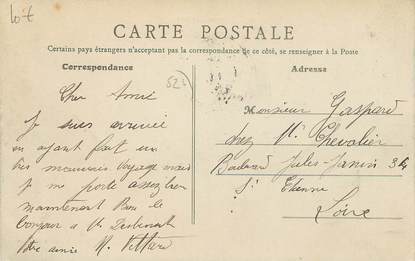 Lot
CARTE POSTALE
Certains pays étrangers n'acceptant pas la correspondance de ce côté, se renseigner à la Poste
Correspondance
Adresse
Cher Amie
Je suis arrivée
en ayant fait un
très mauvais voyage mais
je me porte assez bien
maintenant Bien le
bonjour a
Votre amie
Monsieur Gaspard
chez Mr Chevalier
Boulevard Jules-Janin 34
St Etienne
Loire